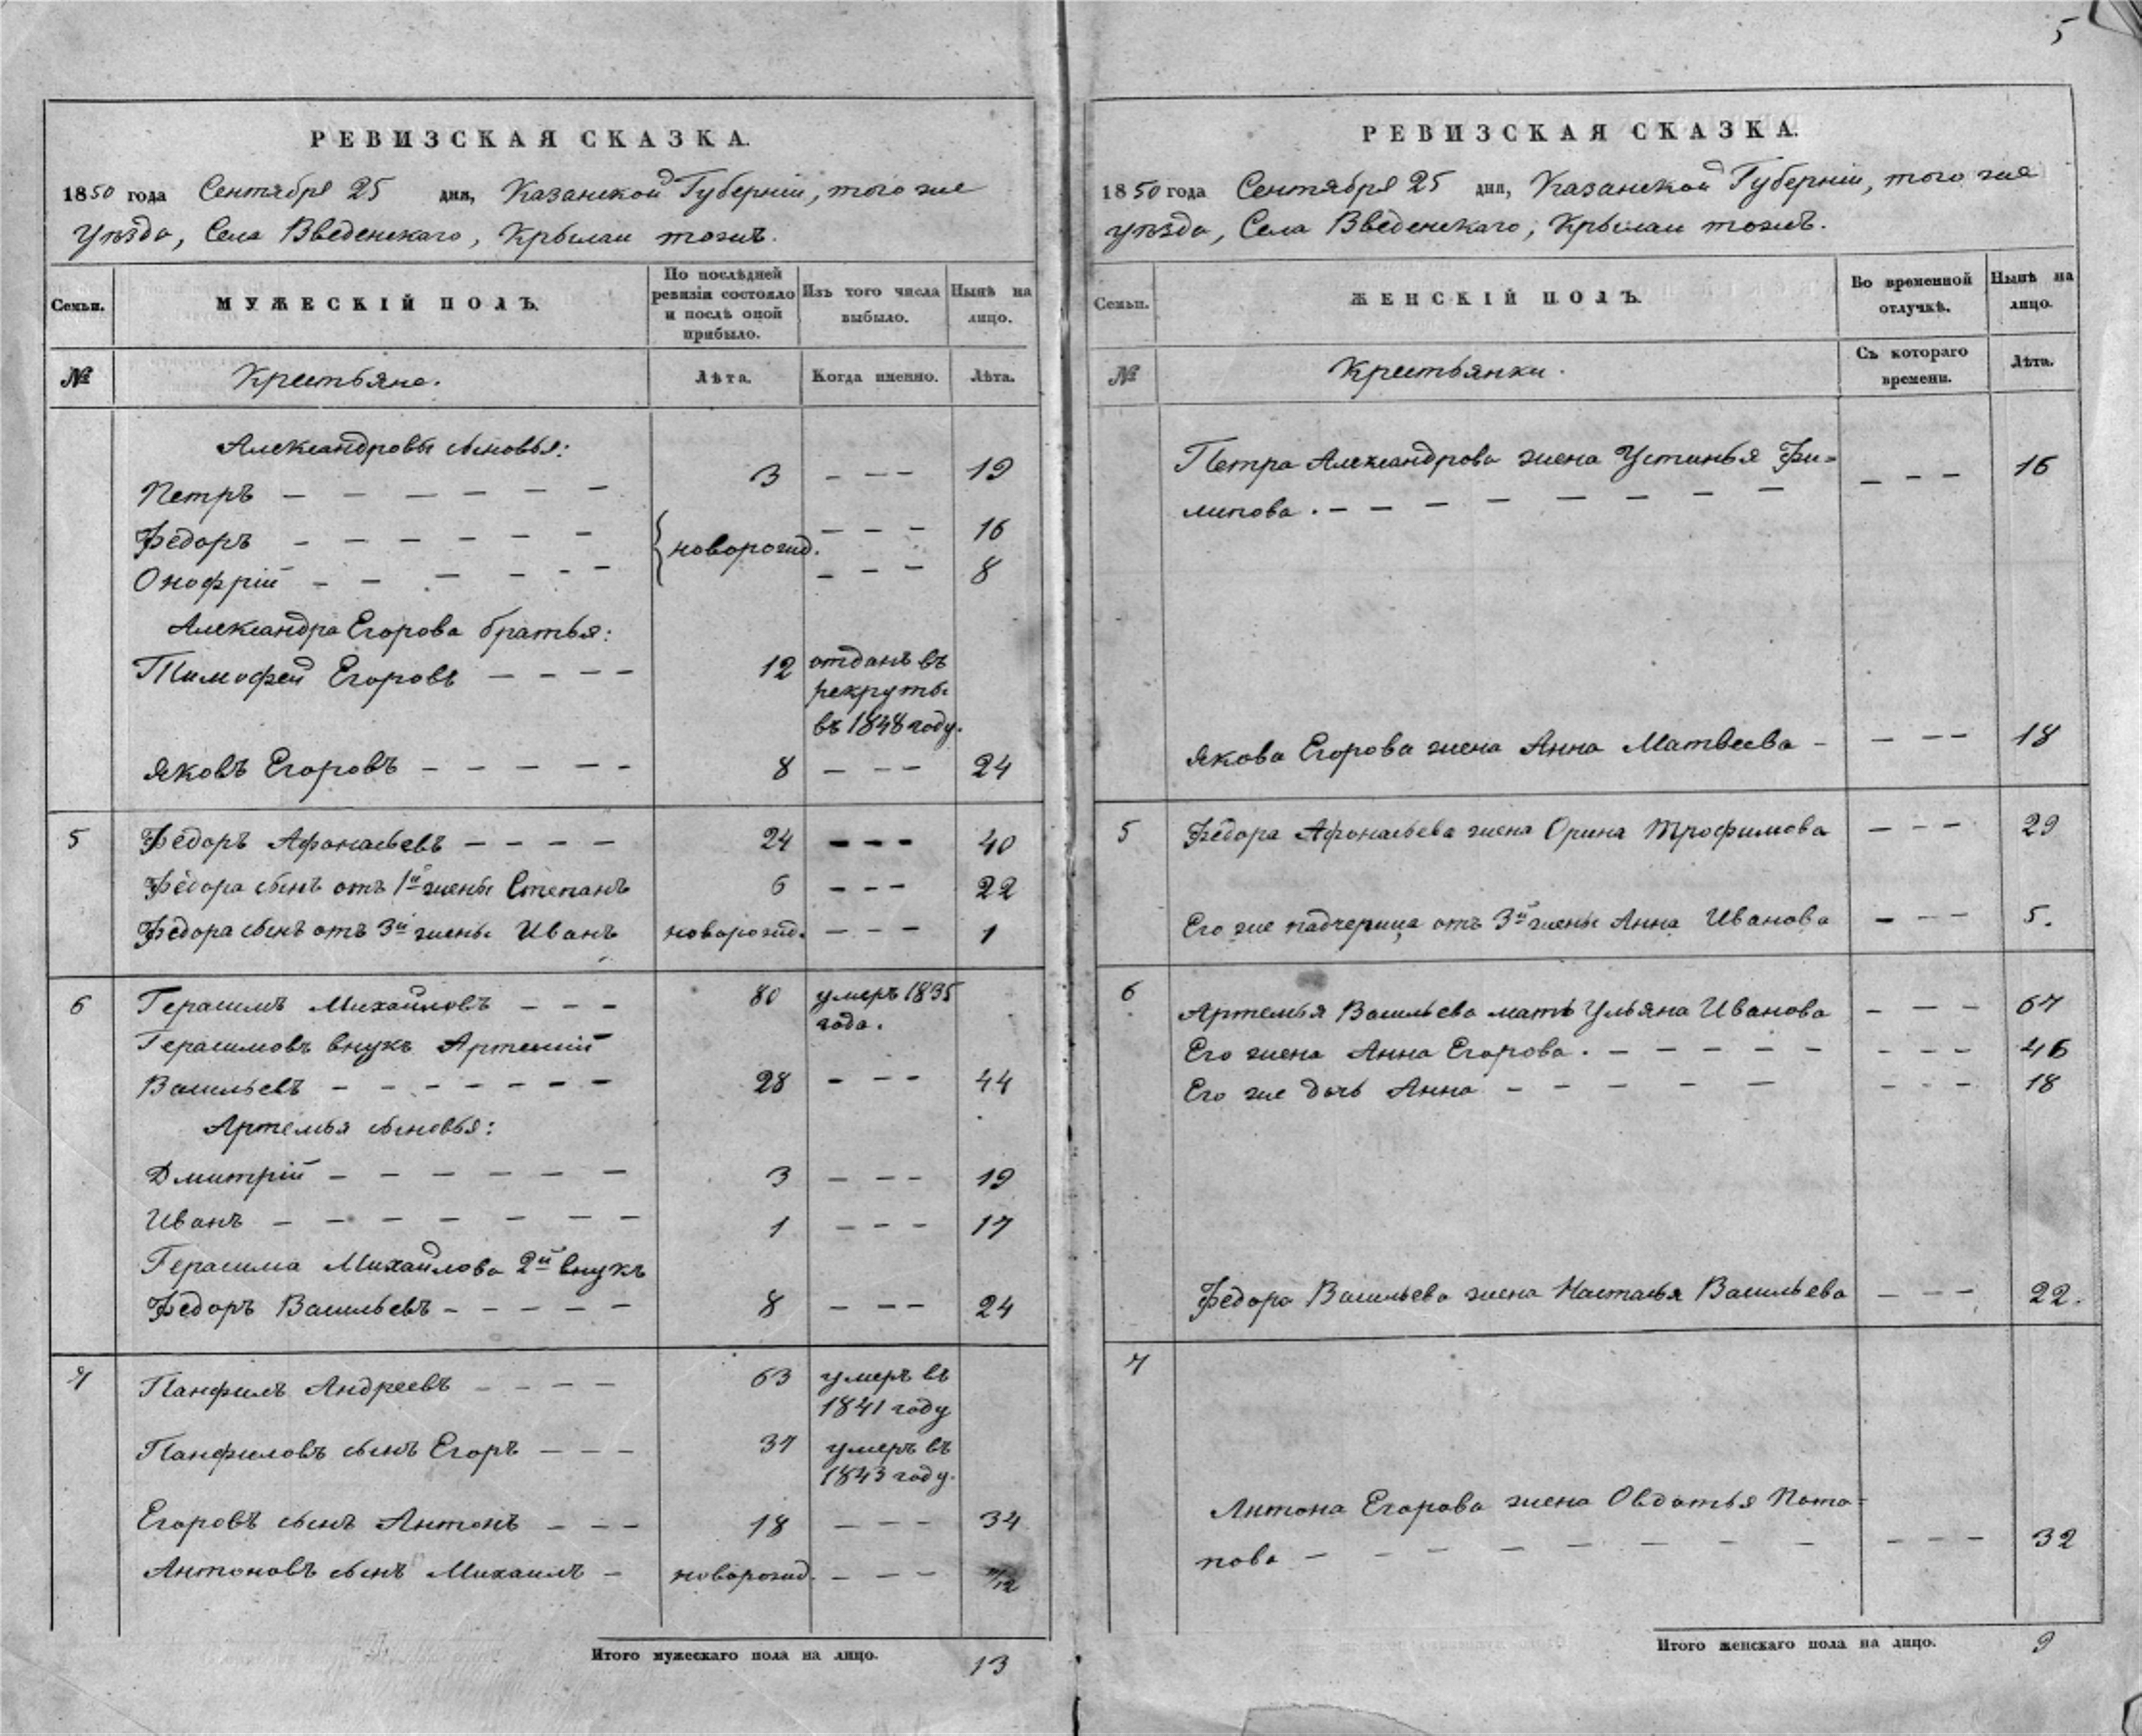 5
РЕВИЗСКАЯ СКАЗКА.
1850 года Сентября 25 дня, Казанской Губерніи, того же
Уѣзда, Села Введенскаго, Крылаи тожъ.
Семьи.
МУЖЕСКІЙ ПОЛЪ.
По послѣдней ревизіи состояло и послѣ оной прибыло.
Изъ того числа выбыло.
Нынѣ на лицо.
№
Крестьяне.
Лѣта.
Когда именно.
Лѣта.
Александровы сыновья:
Петръ — — — — — — 3 — — — 19
Ѳедоръ — — — — — — новорожд. — — — 16
Онофрій — — — — — — — — — 8
Александра Егорова братья:
Тимофей Егоровъ — — — — 12 отданъ въ
рекруты
въ 1848 году.
Яковъ Егоровъ — — — — — 8 — — — 24
5 Ѳедоръ Афонасьевъ — — — — 24 — — — 40
Ѳедора сынъ отъ 1й жены Степанъ 6 — — — 22
Ѳедора сынъ отъ 3й жены Иванъ новорожд. — — — 1
6 Герасимъ Михайловъ — — — 80 умеръ 1835
года.
Герасимовъ внукъ Артемій
Васильевъ — — — — — — — 28 — — — 44
Артемья сыновья:
Дмитрій — — — — — — 3 — — — 19
Иванъ — — — — — — — 1 — — — 17
Герасима Михайлова 2й внукъ
Ѳедоръ Васильевъ — — — — 8 — — — 24
7 Панфилъ Андреевъ — — — — 63 умеръ въ
1841 году
Панфиловъ сынъ Егоръ — — — 37 умеръ въ
1843 году.
Егоровъ сынъ Антонъ — — — 18 — — — 34
Антоновъ сынъ Михаилъ — новорожд. — — —
Итого мужескаго пола на лицо. 13
РЕВИЗСКАЯ СКАЗКА.
1850 года Сентября 25 дня, Казанской Губерніи, того же
уѣзда, Села Введенскаго, Крылаи тожъ.
Семьи.
ЖЕНСКІЙ ПОЛЪ.
Во временной отлучкѣ.
Нынѣ на лицо.
№
Крестьянки.
Съ котораго времени.
Лѣта.
Петра Александрова жена Устинья Фи=
липова. — — — — — — — — — — — 16
Якова Егорова жена Анна Матвеева — — — — 18
5 Ѳедора Афонасьева жена Орина Трофимова — — — 29
Его же падчерица отъ 3й жены Анна Иванова — — — 5.
6 Артемья Васильева мать Ульяна Иванова — — — 67
Его жена Анна Егорова. — — — — — — — — 46
Его же дочь Анна — — — — — — — — 18
Ѳедора Васильева жена Настасья Васильева — — — 22.
7
Антона Егорова жена Овдотья Пота=
пова — — — — — — — — — — — — 32
Итого женскаго пола на лицо. 9